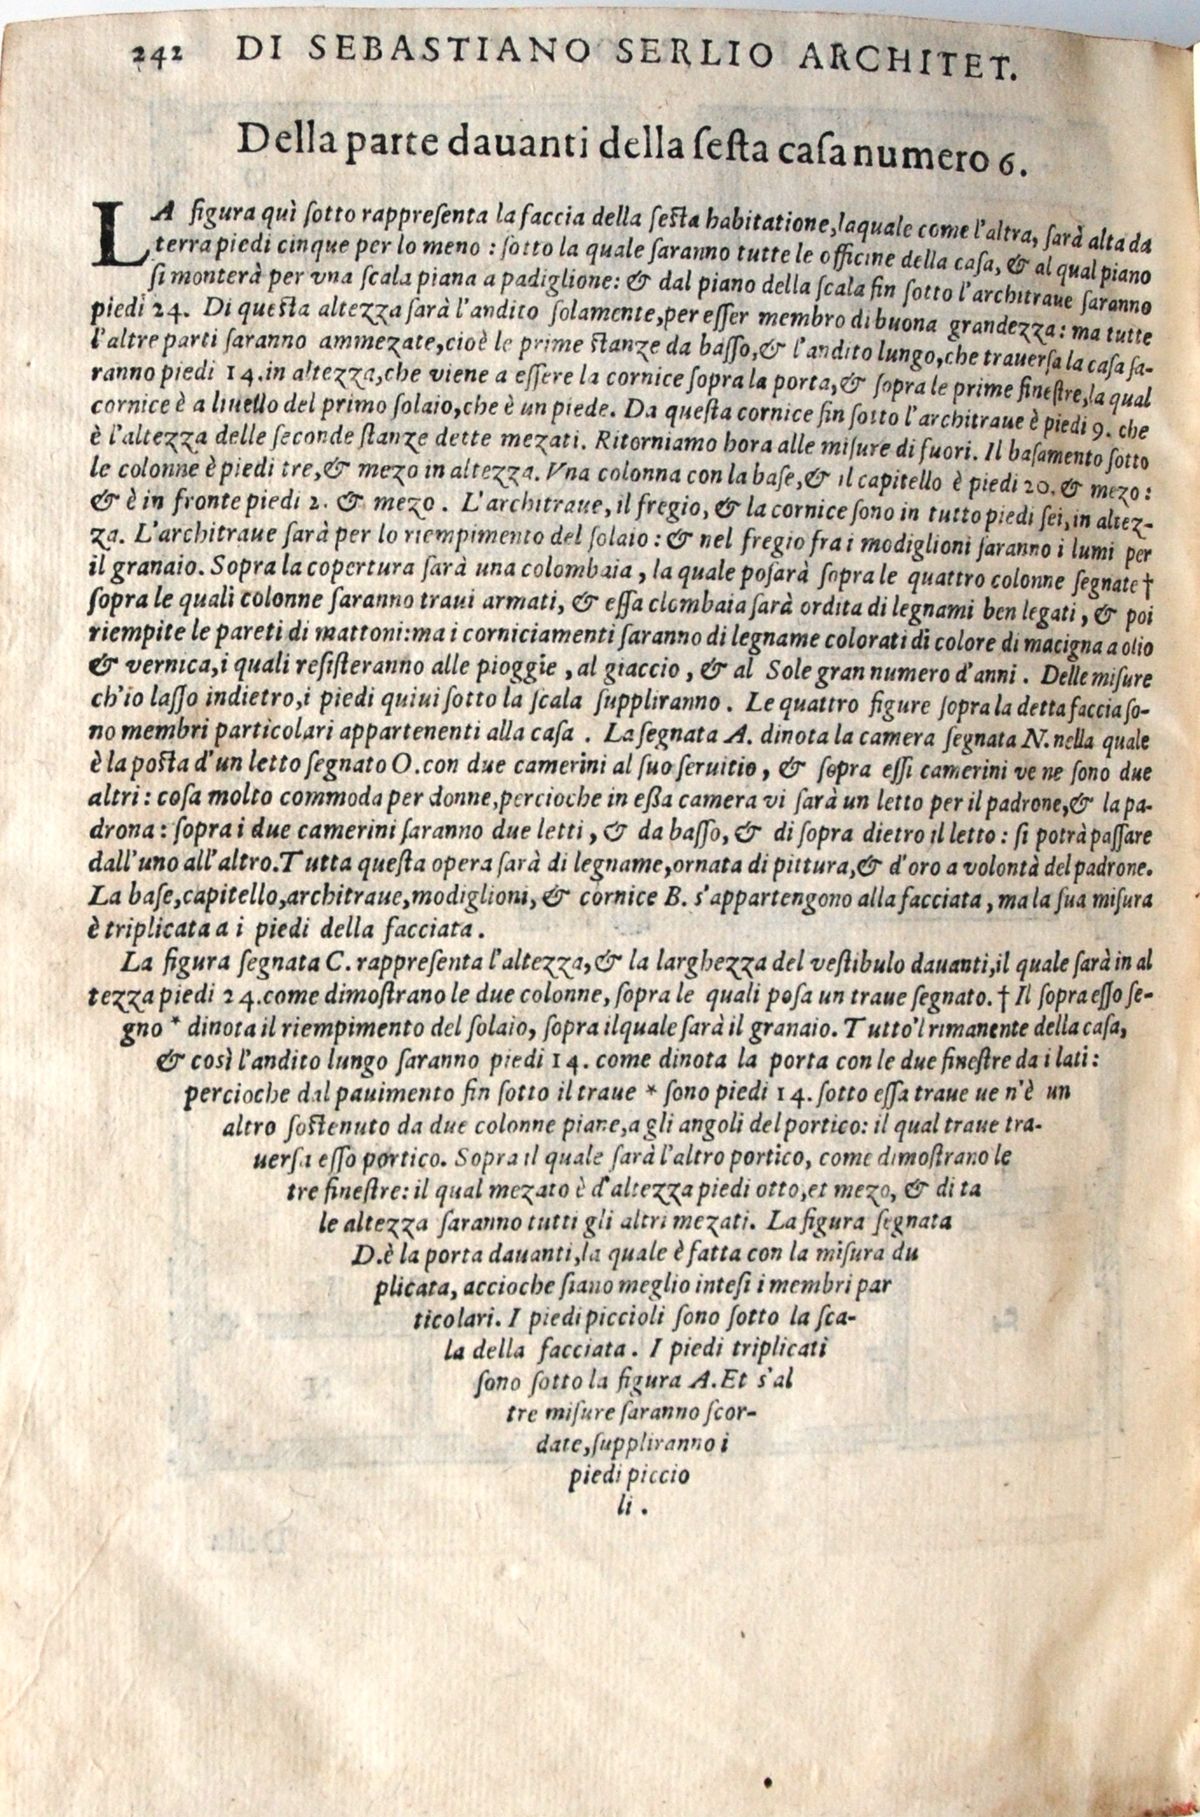 242 DI SEBASTIANO SERLIO ARCHITET.
Della parte dauanti della ſeſta caſa numero 6.
LA figura quì ſotto rappreſenta la faccia della ſeſta habitatione, laquale come l'altra, ſarà alta da
terra piedi cinque per lo meno: ſotto la quale ſaranno tutte le officine della caſa, & al qual piano
ſi monterà per vna ſcala piana a padiglione: & dal piano della ſcala fin ſotto l'architraue ſaranno
piedi 24. Di queſta altezza ſarà l'andito ſolamente, per eſſer membro di buona grandezza: ma tutte
l'altre parti ſaranno ammezate, cioè le prime ſtanze da baſſo, & l'andito lungo, che trauerſa la caſa ſa-
ranno piedi 14. in altezza, che viene a eſſere la cornice ſopra la porta, & ſopra le prime fineſtre, la qual
cornice è a liuello del primo ſolaio, che è un piede. Da queſta cornice fin ſotto l'architraue è piedi 9. che
è l'altezza delle ſeconde ſtanze dette mezati. Ritorniamo hora alle miſure di fuori. Il baſamento ſotto
le colonne è piedi tre, & mezo in altezza. Vna colonna con la baſe, & il capitello è piedi 20. & mezo:
& è in fronte piedi 2. & mezo. L'architraue, il fregio, & la cornice ſono in tutto piedi ſei, in altez-
za. L'architraue ſarà per lo riempimento del ſolaio: & nel fregio fra i modiglioni ſaranno i lumi per
il granaio. Sopra la copertura ſarà una colombaia, la quale poſarà ſopra le quattro colonne ſegnate †
ſopra le quali colonne ſaranno traui armati, & eſſa clombaia ſarà ordita di legnami ben legati, & poi
riempite le pareti di mattoni: ma i corniciamenti ſaranno di legname colorati di colore di macigna a olio
& vernica, i quali reſiſteranno alle pioggie, al giaccio, & al Sole gran numero d'anni. Delle miſure
ch'io laſſo indietro, i piedi quiui ſotto la ſcala ſuppliranno. Le quattro figure ſopra la detta faccia ſo-
no membri particolari appartenenti alla caſa. La ſegnata A. dinota la camera ſegnata N. nella quale
è la poſta d'un letto ſegnato O. con due camerini al ſuo ſeruitio, & ſopra eſſi camerini ve ne ſono due
altri: coſa molto commoda per donne, percioche in eſſa camera vi ſarà un letto per il padrone, & la pa-
drona: ſopra i due camerini ſaranno due letti, & da baſſo, & di ſopra dietro il letto: ſi potrà paſſare
dall'uno all'altro. Tutta queſta opera ſarà di legname, ornata di pittura, & d'oro a volontà del padrone.
La baſe, capitello, architraue, modiglioni, & cornice B. s'appartengono alla facciata, ma la ſua miſura
è triplicata a i piedi della facciata.
La figura ſegnata C. rappreſenta l'altezza, & la larghezza del veſtibulo dauanti, il quale ſarà in al
tezza piedi 24. come dimoſtrano le due colonne, ſopra le quali poſa un traue ſegnato. † Il ſopra eſſo ſe-
gno * dinota il riempimento del ſolaio, ſopra ilquale ſarà il granaio. Tutto'l rimanente della caſa,
& così l'andito lungo ſaranno piedi 14. come dinota la porta con le due fineſtre da i lati:
percioche dal pauimento fin ſotto il traue * ſono piedi 14. ſotto eſſa traue ue n'è un
altro ſoſtenuto da due colonne piane, a gli angoli del portico: il qual traue tra-
uerſa eſſo portico. Sopra il quale ſarà l'altro portico, come dimoſtrano le
tre fineſtre: il qual mezato è d'altezza piedi otto, et mezo, & di ta
le altezza ſaranno tutti gli altri mezati. La figura ſegnata
D. è la porta dauanti, la quale è fatta con la miſura du
plicata, accioche ſiano meglio inteſi i membri par
ticolari. I piedi piccioli ſono ſotto la ſca-
la della facciata. I piedi triplicati
ſono ſotto la figura A. Et s'al
tre miſure ſaranno ſcor-
date, ſuppliranno i
piedi piccio
li.